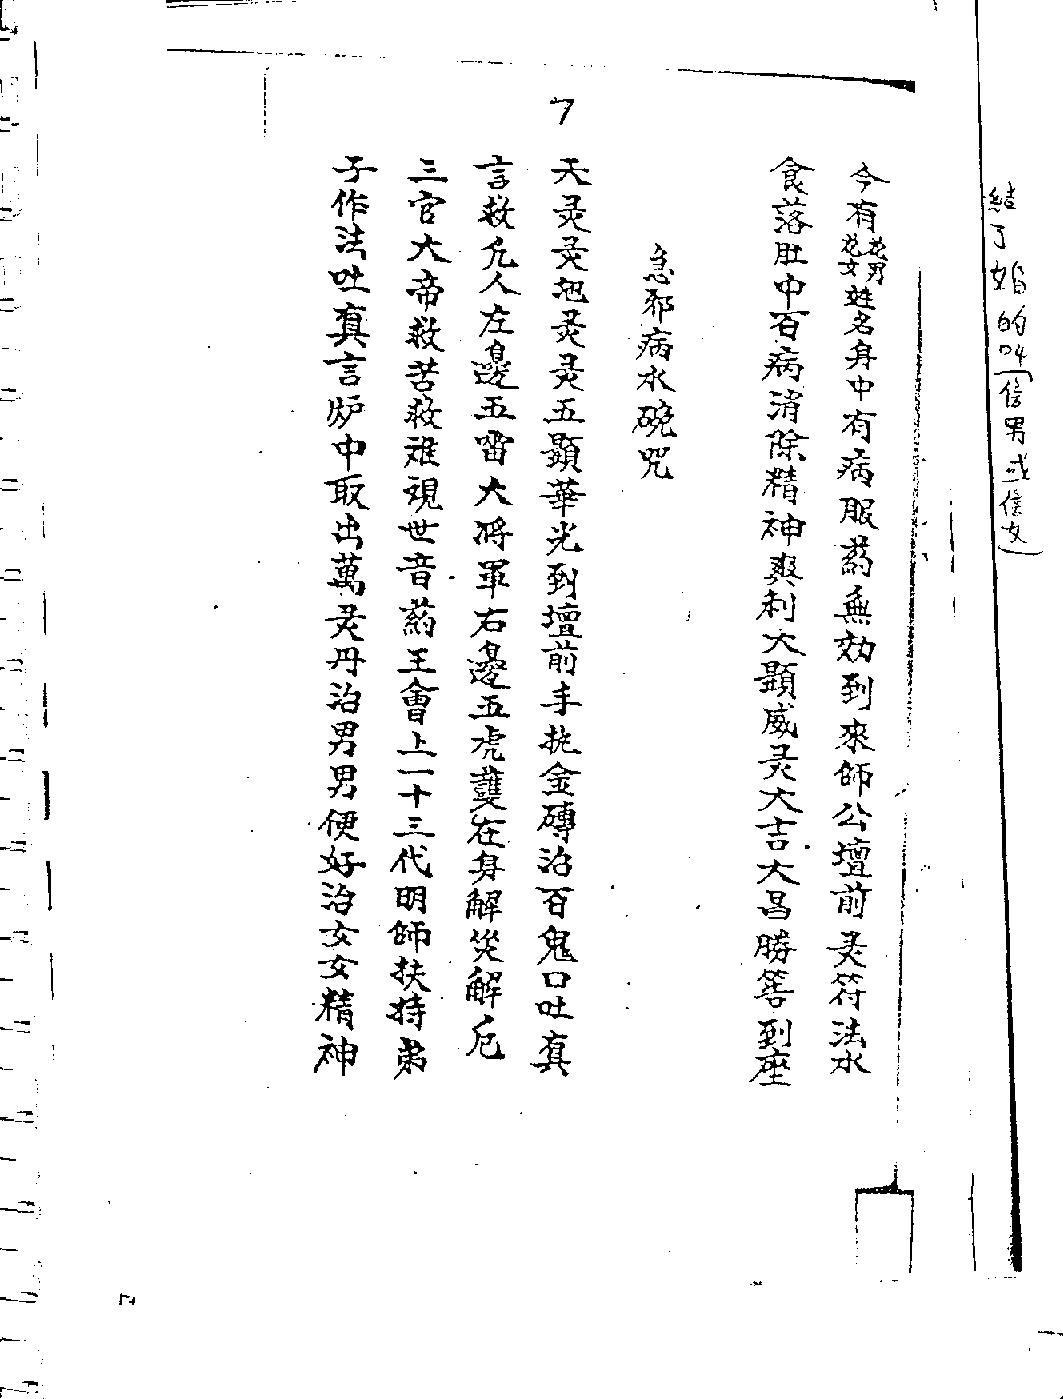 結了婚的叫(信男或信女)
今有花男花女姓名身中有病服药無効到來師公壇前灵符法水
食落肚中百病消除精神爽利大顯威灵大吉大昌勝筶到座
急邪病水碗咒
7
天灵灵地灵灵五顯華光到壇前手执金磚治百鬼口吐真
言救凡人左邊五雷大将軍右邊五虎䕶在身解災解厄
三官大帝救苦救难視世音药王會上一十三代明師扶持弟
子作法吐真言炉中取出萬灵丹治男男便好治女女精神